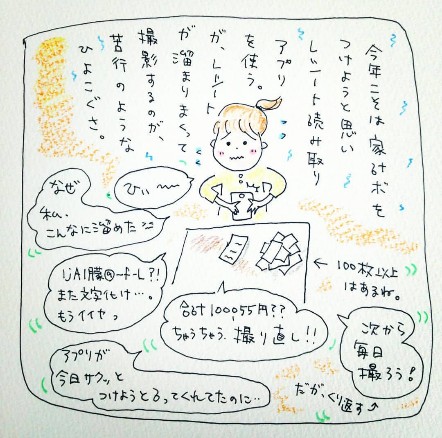 今年こそは家計ボを
つけようと思い
レシート読み取り
アプリ
を使う。
が、レシート
が溜まりまくって
撮影するのが、
苦行のような
ひよこぐさ。
ひぃ〜〜
なぜ
私、
こんなに溜めた
← 100枚以上
はあるね。
また文字化け…。
もうイイヤっ
合計100055円??
ちゃうちゃう、撮り直し!!
次から
毎日
撮ろう!
アプリが
今日サクッと
つけようとるってくれてたのに…
だが、くり返す⤴